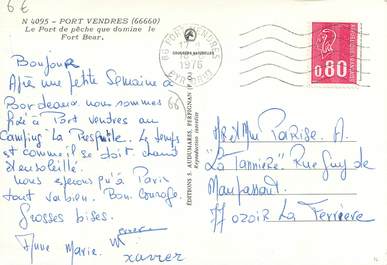 6€
N 4095 - PORT VENDRES (66660)
Le Port de pêche que domine le
Fort Bear.
Bonjour
Après une petite Semaine à
Bordeaux nous sommes
à Port vendres au
Camping La Presqu'ile. Le temps
est comme il se doit, chaud
et ensoleillé.
Nous espérons qu'à Paris
tout va bien. Bon Courage.
Grosses bises.
Anne Marie.
xavier
66
66 PORT-VENDRES
1976
ÉDITIONS S. AUDUMARES, PERPIGNAN (P.-O.)
Reproduction interdite
0,80
PARISE. A.
"La Tannière" Rue Guy de
Maupassant.
77
La Ferrière